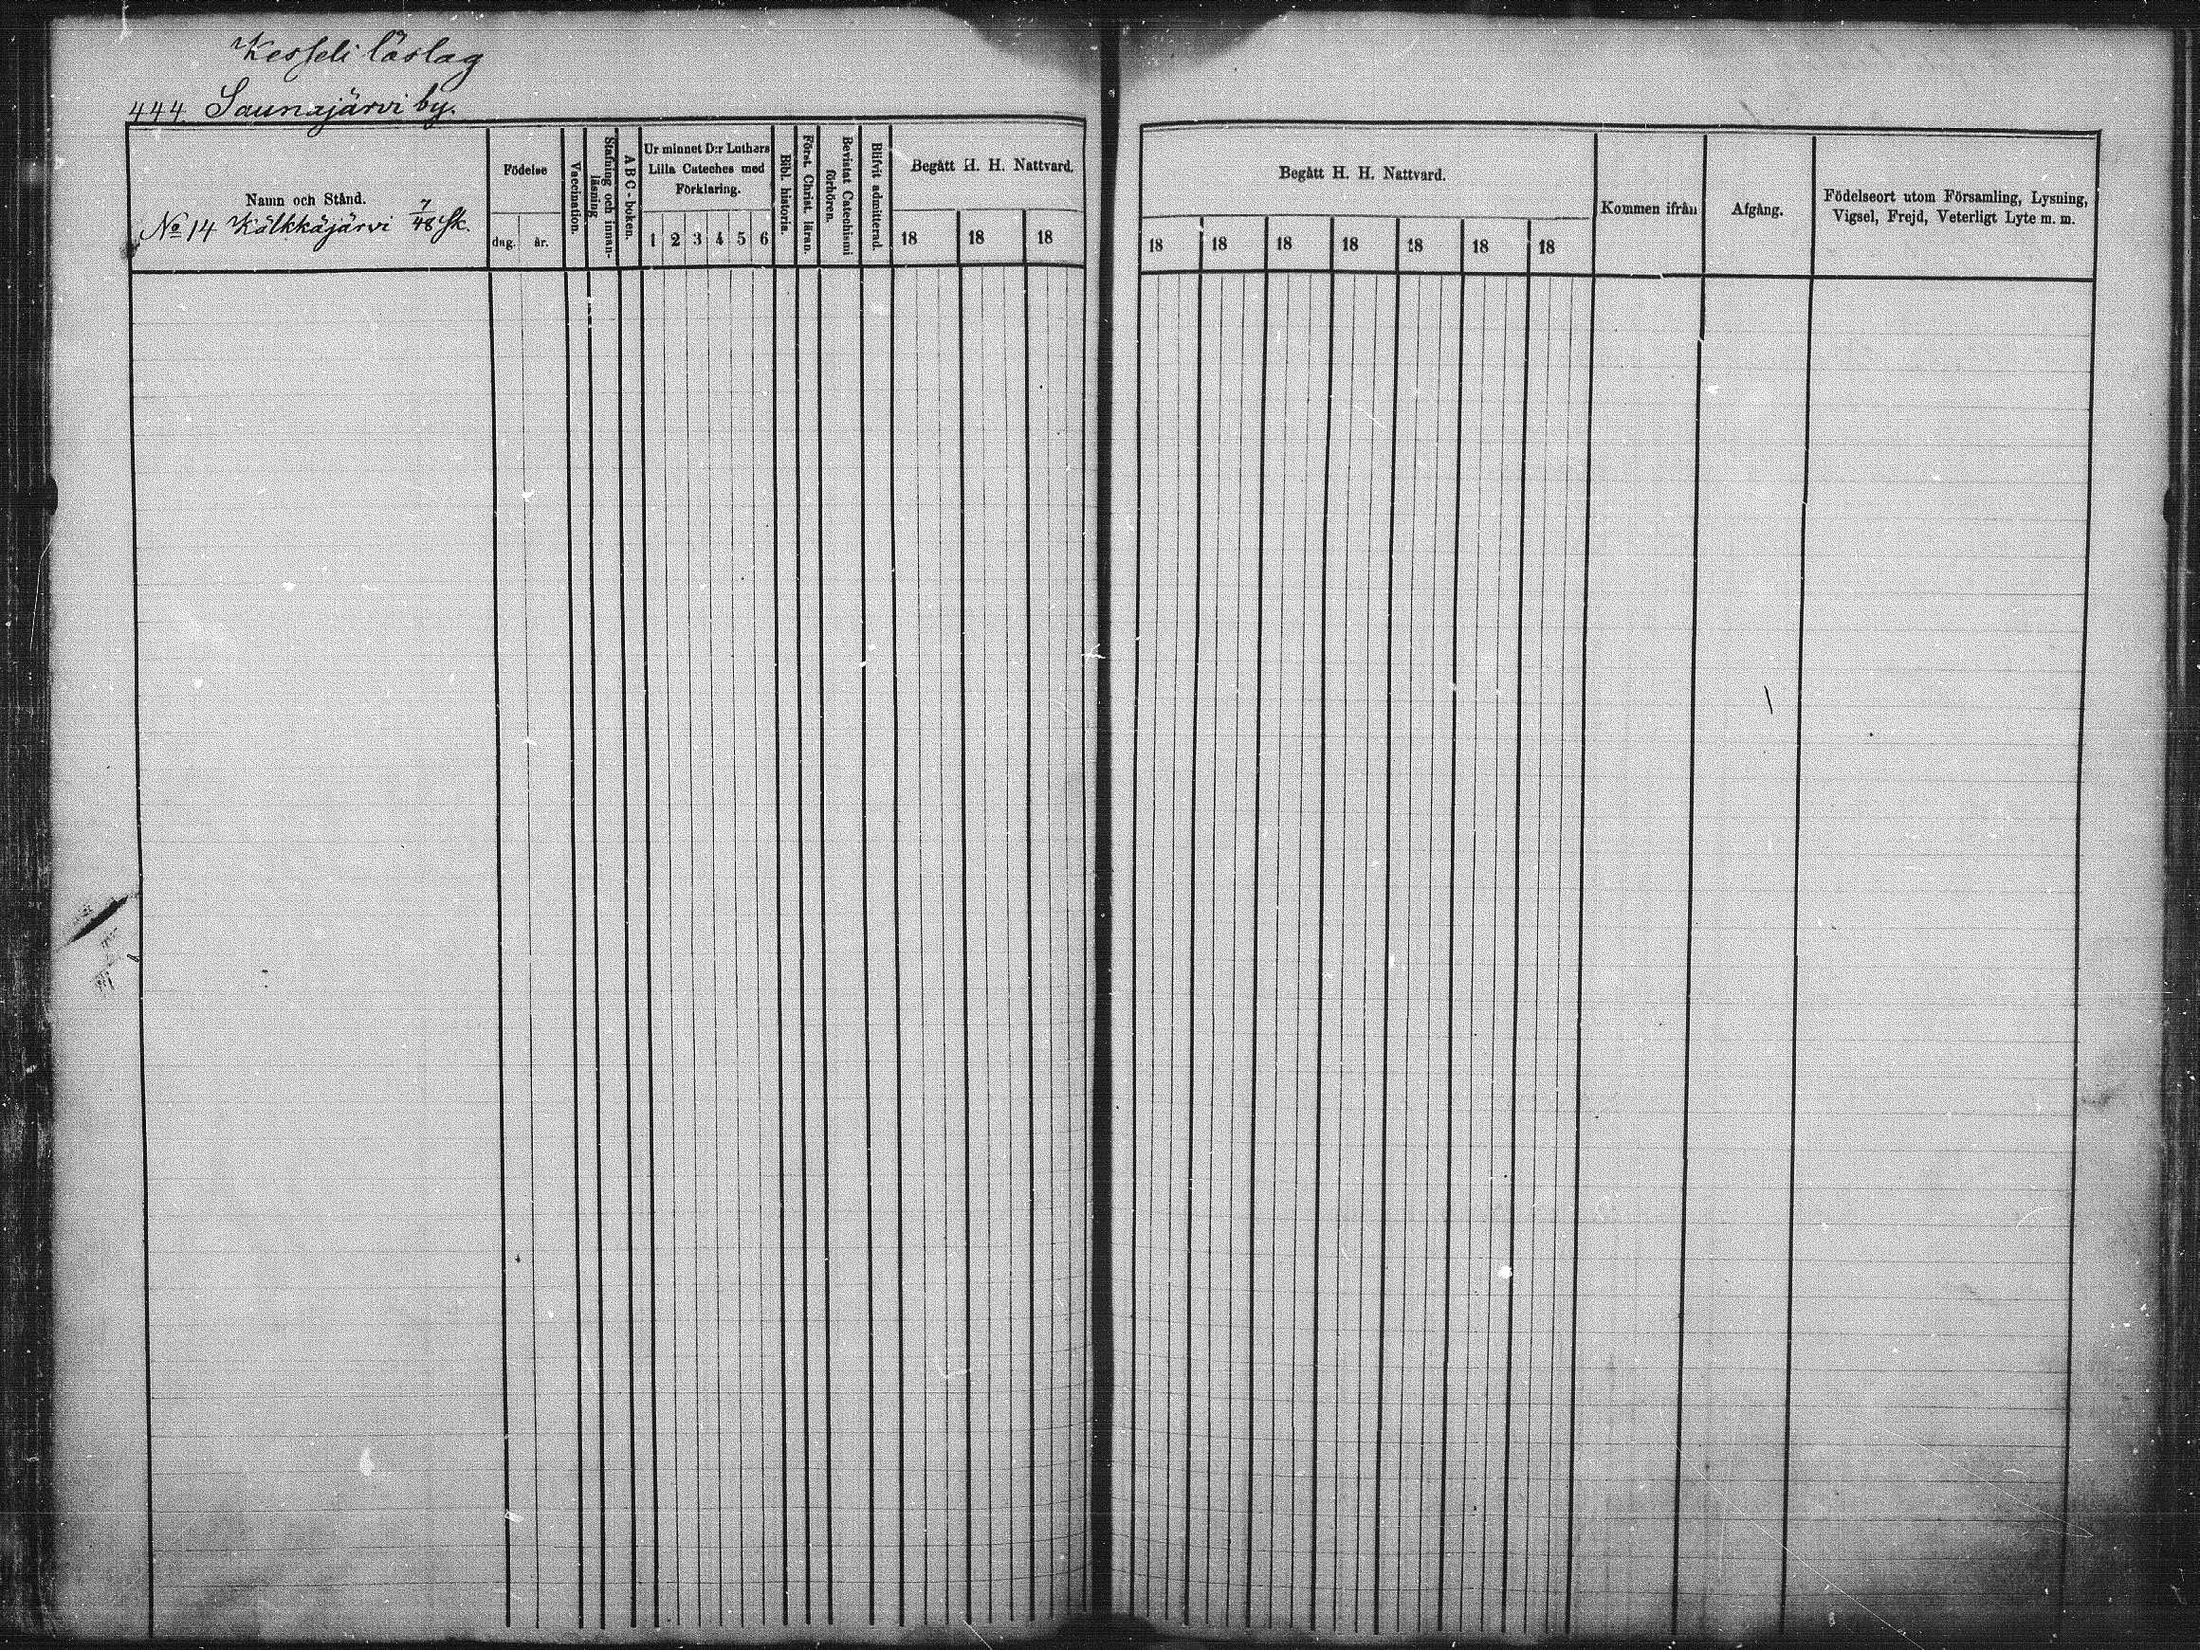 Kesseli läslag
444. Saunajärvi by.
Namn och Stånd.
No 14 Kälkkäjärvi 7/48 Sk.
Födelse
dag. år.
Vaccination.
Stafning och innan-
läsning
ABC-boken.
Ur minnet D:r Luthers
Lilla Cateches med
Förklaring.
1 2 3 4 5 6
Bibl. historia.
Först. Christ. läran.
Bevistat Catechismi
förhören.
Blifvit admitterad.
Begått H. H. Nattvard.
18 18 18
Begått H. H. Nattvard.
18 18 18 18 18 18 18
Kommen ifrån
Afgång.
Födelseort utom Församling, Lysning,
Vigsel, Frejd, Veterligt Lyte m. m.